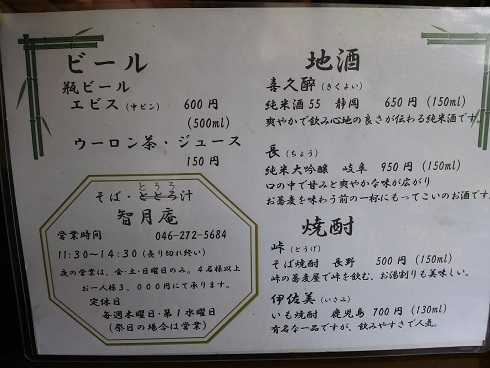 ビール
瓶ビール
エビス（中ビン） 600円
(500ml)
ウーロン茶・ジュース
150円
とろろ
そば・とろろ汁
智月庵
営業時間 046-272-5684
11:30～14:30（売り切れ終い）
夜の営業は、金・土・日曜日のみ。4名様以上
お一人様3,000円にて承ります。
定休日
毎週木曜日・第1水曜日
（祭日の場合は営業）
地酒
喜久酔（きくよい）
純米酒55 静岡 650円(150ml)
爽やかで飲み心地の良さが伝わる純米酒です。
長（ちょう）
純米大吟醸 岐阜 950円(150ml)
口の中で甘みと爽やかな味が広がり
お蕎麦を味わう前の一杯にもってこいのお酒です。
焼酎
峠（とうげ）
そば焼酎 長野 500円(150ml)
峠の蕎麦屋で峠を飲む、お湯割りも美味しい。
伊佐美（いさみ）
いも焼酎 鹿児島 700円(130ml)
有名な一品ですが、飲みやすさで人気。